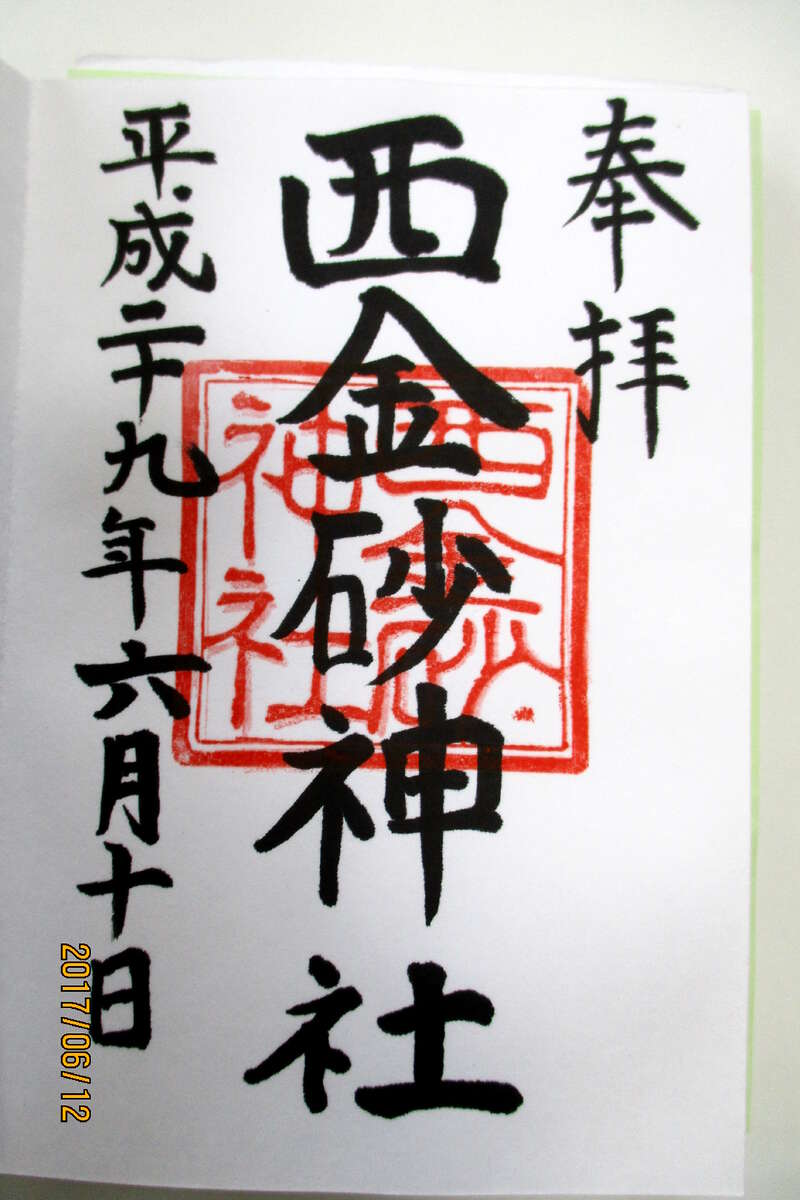 奉拝
西金砂神社
西金砂
神社
平成二十九年六月十日
2017/06/12